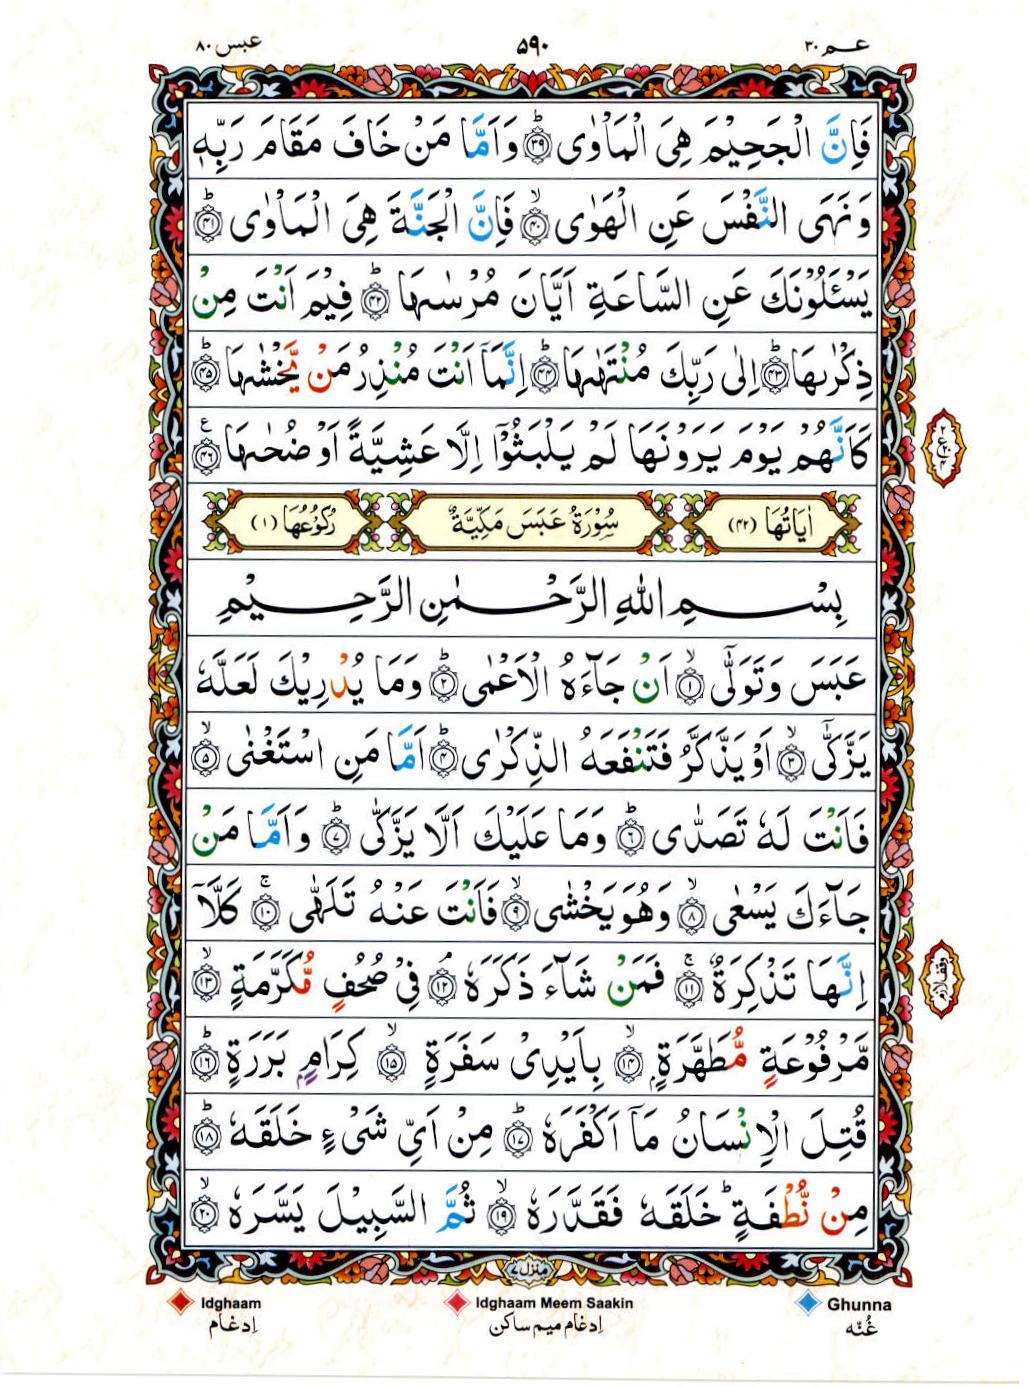 عــم ۳۰
۵۹۰
عبس ۸۰
فَاِنَّ الْجَحِيْمَ هِىَ الْمَاْوٰى ؕ۳۹ وَاَمَّا مَنْ خَافَ مَقَامَ رَبِّهٖ
وَنَهَى النَّفْسَ عَنِ الْهَوٰى ۙ۴۰ فَاِنَّ الْجَنَّةَ هِىَ الْمَاْوٰى ؕ۴۱
يَسْـَٔلُوْنَكَ عَنِ السَّاعَةِ اَيَّانَ مُرْسٰىهَا ؕ۴۲ فِيْمَ اَنْتَ مِنْ
ذِكْرٰىهَا ؕ۴۳ اِلٰى رَبِّكَ مُنْتَهٰىهَا ؕ۴۴ اِنَّمَاۤ اَنْتَ مُنْذِرُ مَنْ يَّخْشٰىهَا ؕ۴۵
كَاَنَّهُمْ يَوْمَ يَرَوْنَهَا لَمْ يَلْبَثُوْۤا اِلَّا عَشِيَّةً اَوْ ضُحٰىهَا ۴۶ ع
اٰيَاتُهَا (۴۲)
سُوْرَةُ عَبَسَ مَكِّيَّةٌ
رُكُوْعُهَا (۱)
بِسْمِ اللهِ الرَّحْمٰنِ الرَّحِيْمِ
عَبَسَ وَتَوَلّٰٓى ۙ۱ اَنْ جَآءَهُ الْاَعْمٰى ؕ۲ وَمَا يُدْرِيْكَ لَعَلَّهٗ
يَزَّكّٰٓى ۙ۳ اَوْ يَذَّكَّرُ فَتَنْفَعَهُ الذِّكْرٰى ؕ۴ اَمَّا مَنِ اسْتَغْنٰى ۙ۵
فَاَنْتَ لَهٗ تَصَدّٰى ؕ۶ وَمَا عَلَيْكَ اَلَّا يَزَّكّٰى ؕ۷ وَاَمَّا مَنْ
جَآءَكَ يَسْعٰى ۙ۸ وَهُوَ يَخْشٰى ۙ۹ فَاَنْتَ عَنْهُ تَلَهّٰى ۚ۱۰ كَلَّاۤ
اِنَّهَا تَذْكِرَةٌ ۚ۱۱ فَمَنْ شَآءَ ذَكَرَهٗ ۘ۱۲ فِىْ صُحُفٍ مُّكَرَّمَةٍ ۙ۱۳
مَّرْفُوْعَةٍ مُّطَهَّرَةٍ ۭ ۙ۱۴ بِاَيْدِىْ سَفَرَةٍ ۙ۱۵ كِرَامٍ ۭ بَرَرَةٍ ؕ۱۶
قُتِلَ الْاِنْسَانُ مَاۤ اَكْفَرَهٗ ؕ۱۷ مِنْ اَىِّ شَىْءٍ خَلَقَهٗ ؕ۱۸
مِنْ نُّطْفَةٍ ؕ خَلَقَهٗ فَقَدَّرَهٗ ۙ۱۹ ثُمَّ السَّبِيْلَ يَسَّرَهٗ ۙ۲۰
منزل ۷
Ghunna
Idghaam Meem Saakin
Idghaam
غُنّه
اِدغام میم ساکن
اِدغام